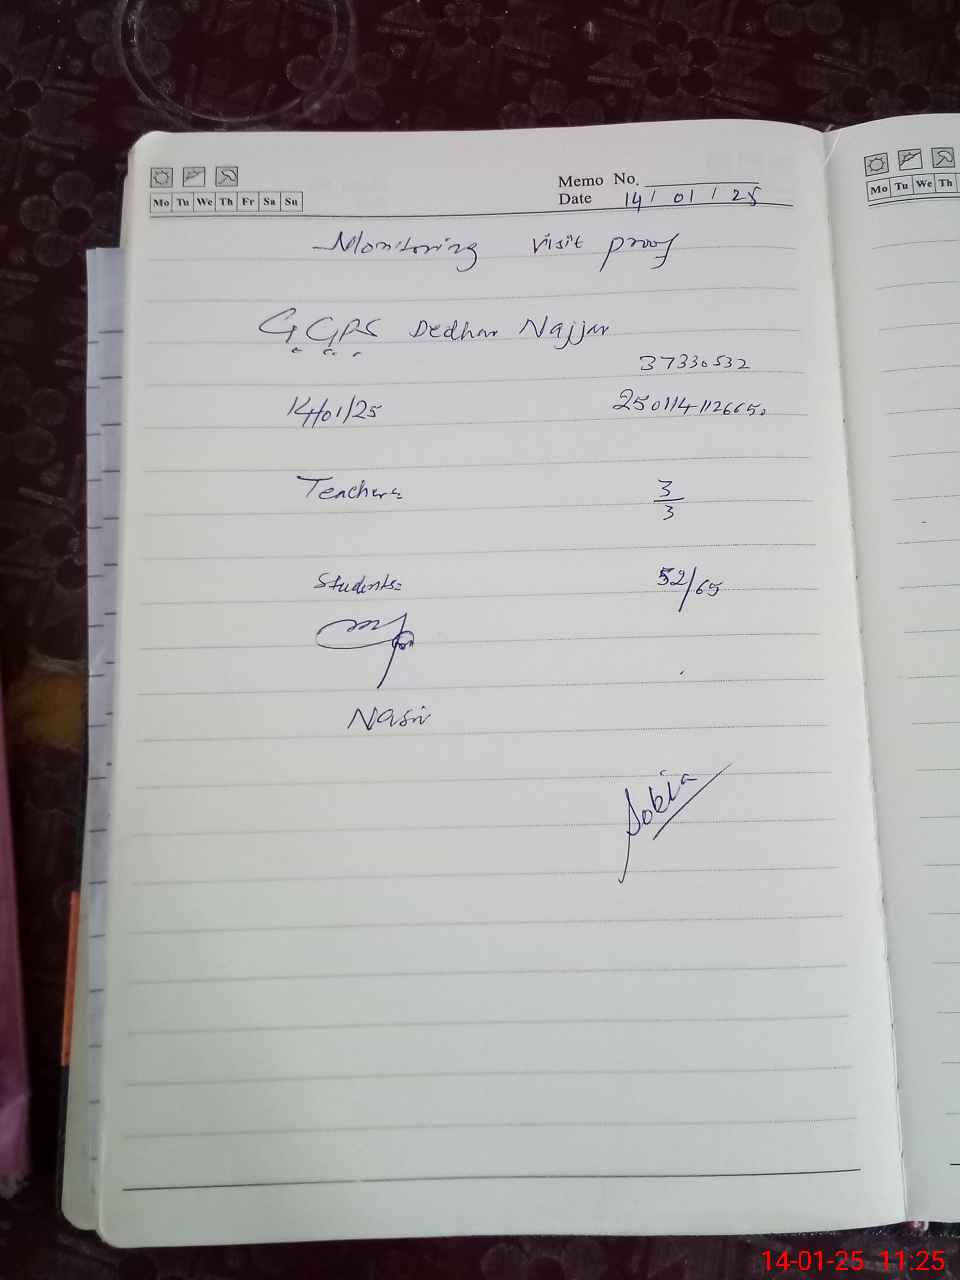 Memo No.
Mo Tu We Th Fr Sa Su
Date 14/01/25
Monitoring visit proof
GGPS Dedhar Najjar
37330532
14/01/25
Teachers
3
3
Students
52/65
Sobia
Mo Tu We Th
14-01-25 11:25